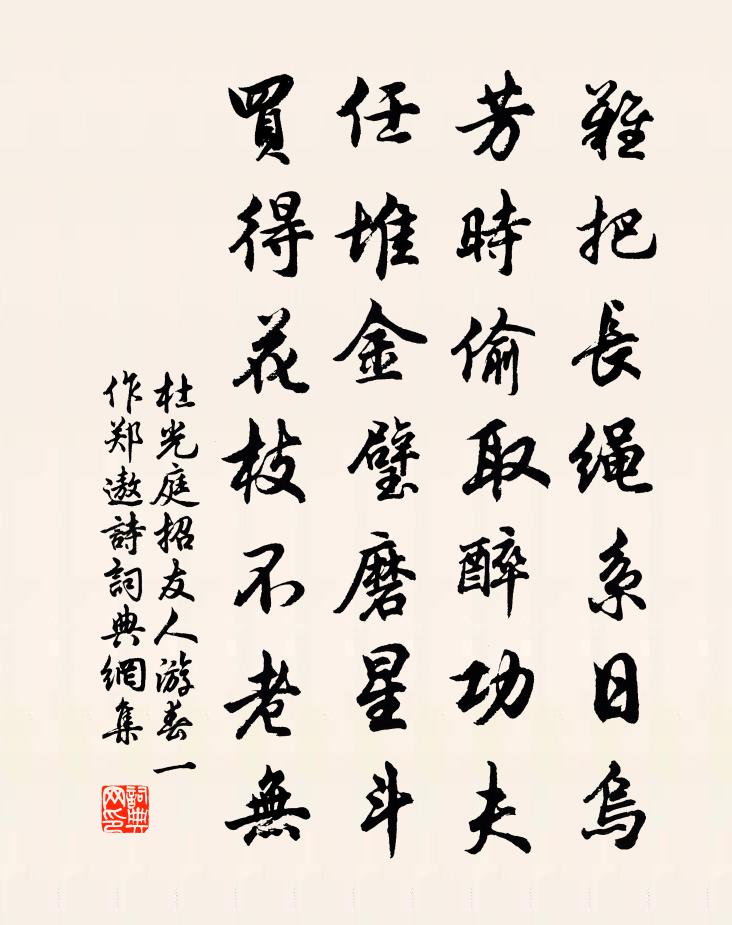 難把長繩系日烏
芳時偷取醉功夫
任堆金璧磨星斗
買得花枝不老無
杜光庭招友人游春一
作郑遨詩詞典網集
詞典网印